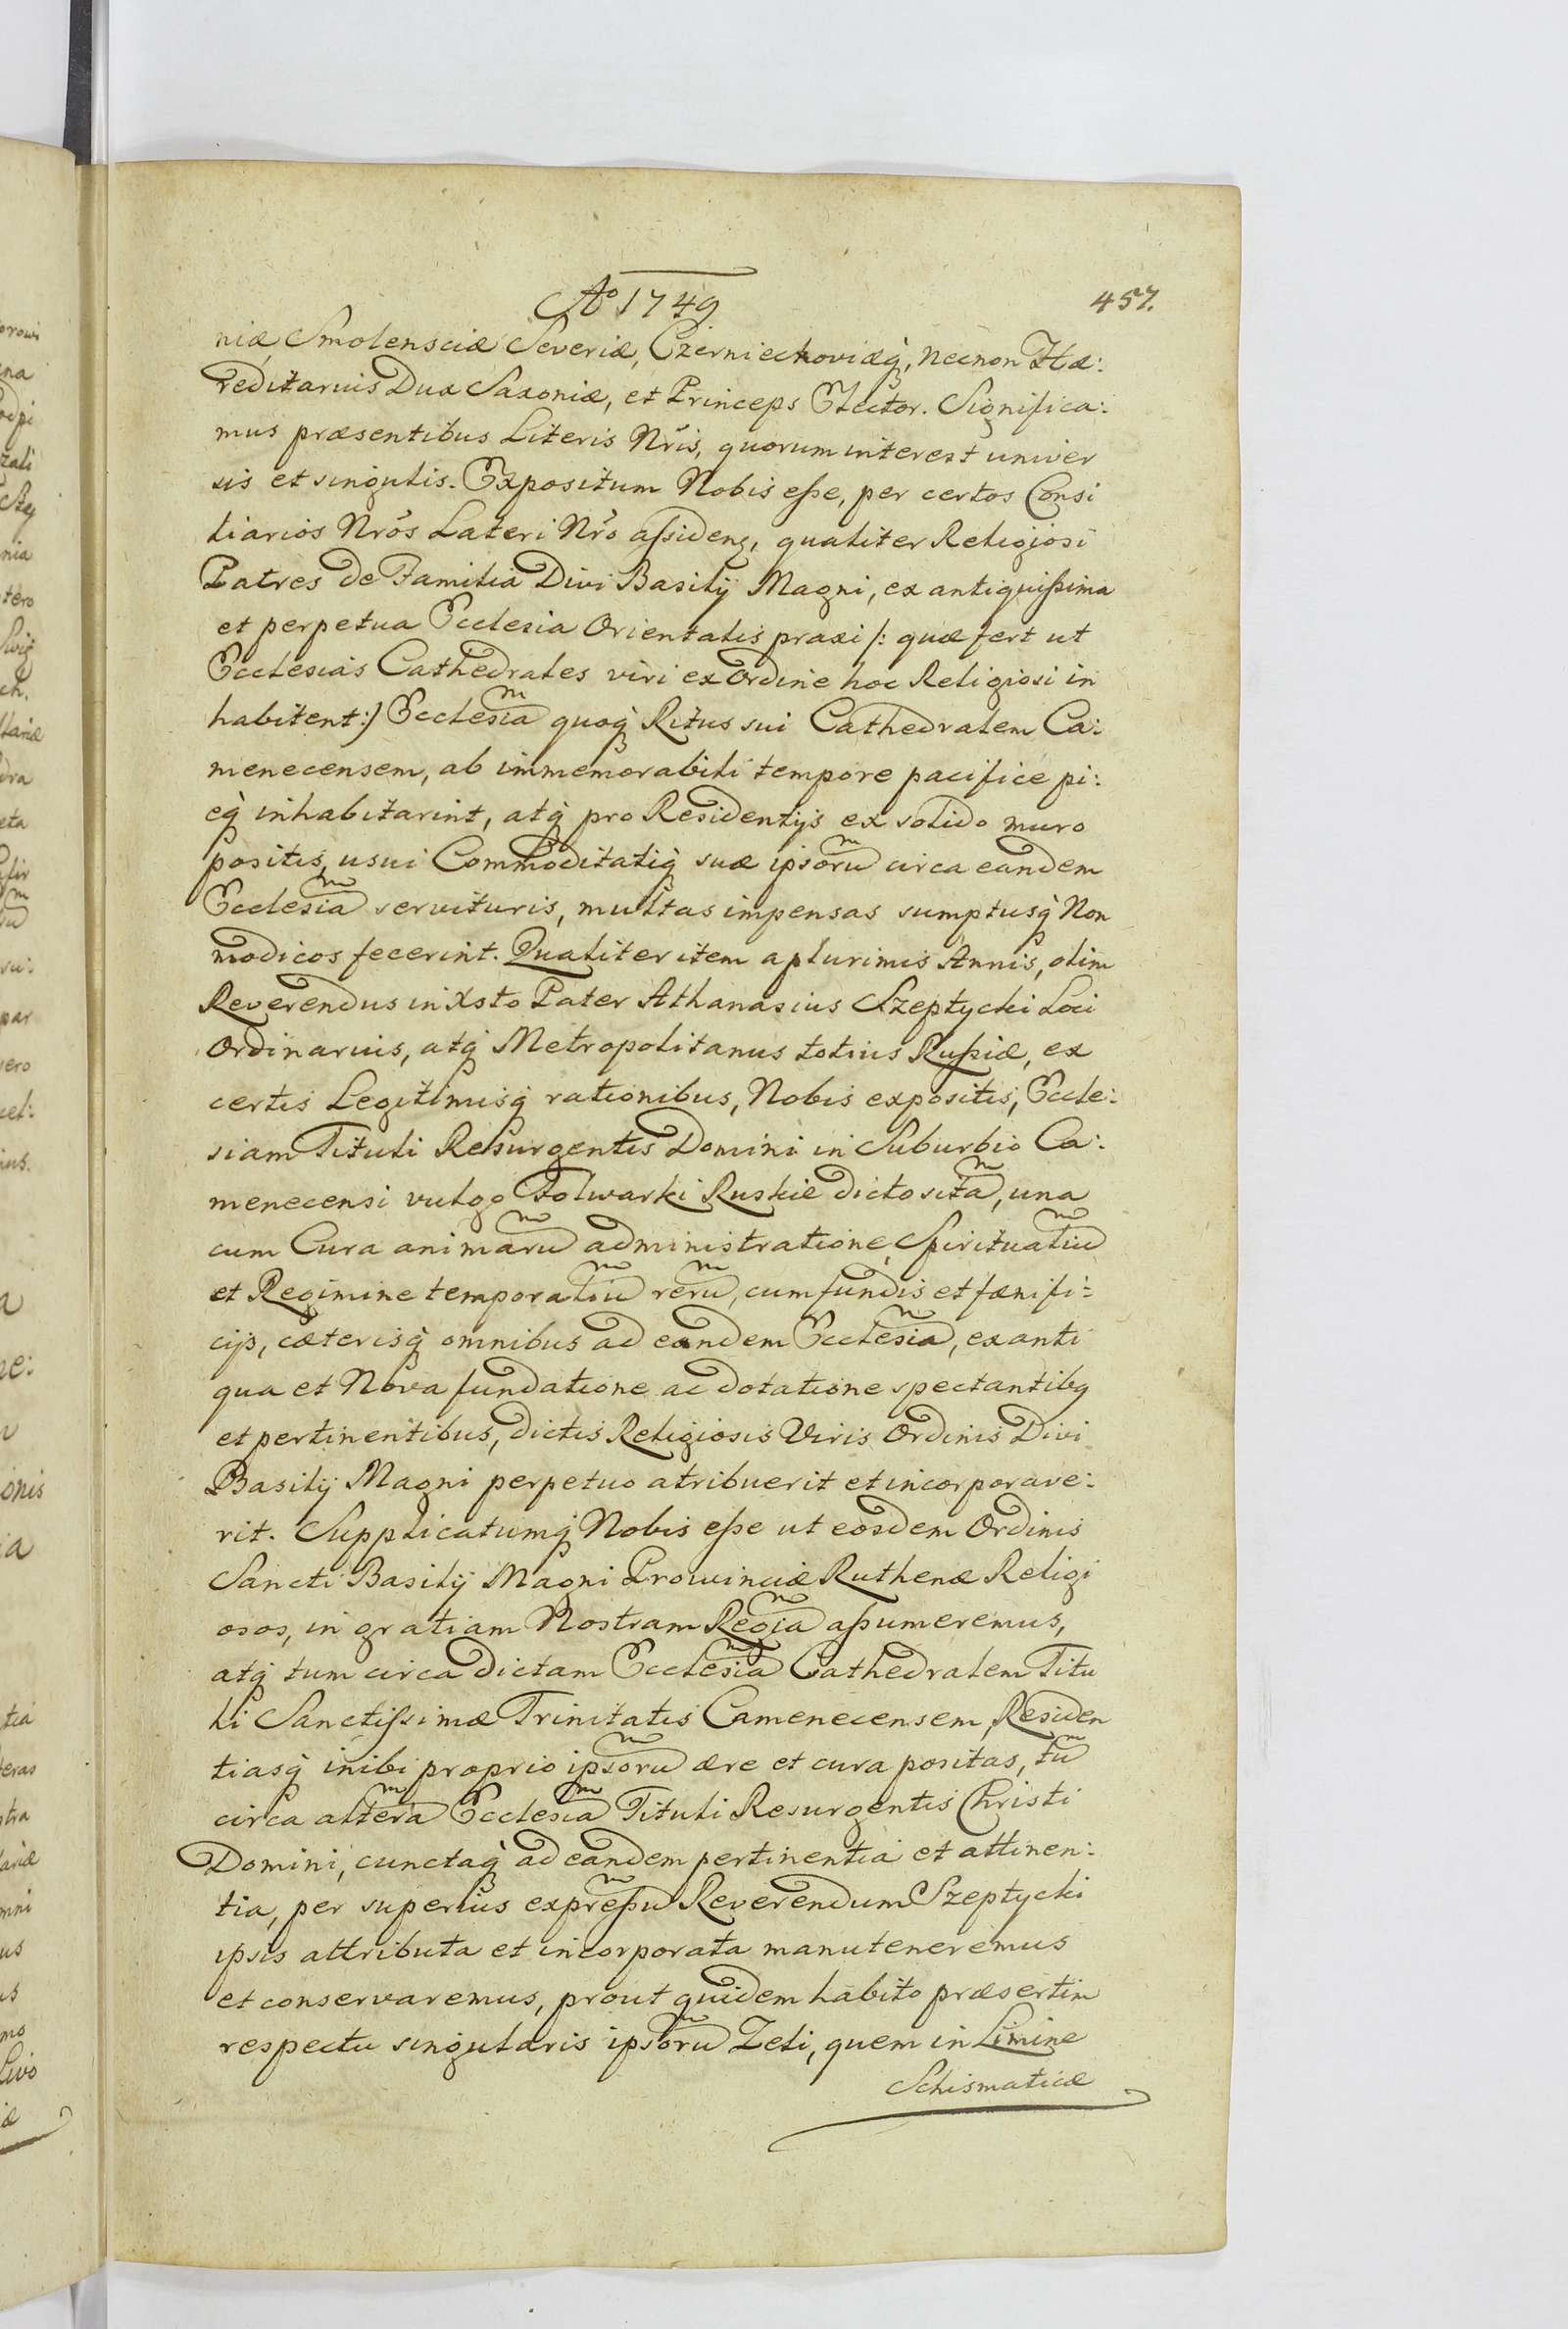 Aº 1749
457.
niæ, Smolensciæ Severiæ, Czerniechoviæq̃, necnon Hæ:
reditarius Dux Saxoniæ, et Princeps Elector. Significa:
mus præsentibus Literis Nr̃is, quorum interest univer
sis et singulis. Expositum Nobis eſse, per certos Consi
liarios Nr̃os Lateri Nr̃o aſsidenꝫ, qualiter Religiosi
Patres de Familia Divi Basilij Magni, ex antiquiſsima
et perpetua Ecclesia Orientalis praxi /: quæ fert ut
Ecclesias Cathedrales viri ex Ordine hoc Religiosi in
habitent:/ Ecclesiam quoq̃ Ritus sui Cathedralem Ca:
menecensem, ab immemorabili tempore pacifice pi:
eq̃ inhabitarint, atq̃ pro Residentijs ex solido muro
positis, usui Commoditatiq̃ suæ ipsorum circa eandem
Ecclesiam servituris, multas impensas sumptusq̃ Non
modicos fecerint. Qualiter item a plurimis Annis, olim
Reverendus in Xsto Pater Athanasius Szeptycki Loci
Ordinarius, atq̃ Metropolitanus totius Ruſsiæ, ex
certis Legitimisq̃ rationibus, Nobis expositis, Eccle:
siam Tituli Resurgentis Domini in Suburbio Ca:
menecensi vulgo Folwarki Ruskie dicto sitam, una
cum Cura animarum administratione, Spiritualium
et Regimine temporalium rerum, cum fundis et fænifi:
cijs, cæterisq̃ omnibus ad eandem Ecclesiam, ex anti
qua et Nova fundatione ac dotatione spectantibꝫ
et pertinentibus, dictis Religiosis Viris Ordinis Divi
Basilij Magni perpetuo atribuerit et incorporave:
rit. Supplicatumq̃ Nobis eſse ut eosdem Ordinis
Sancti Basilij Magni Prowinciæ Ruthenæ Religi
osos, in gratiam Nostram Regiam aſsumeremus,
atq̃ tum circa dictam Ecclesiam Cathedralem Titu
li Sanctiſsimæ Trinitatis Camenecensem, Residen
tiasq̃ inibi proprio ipsorum ære et cura positas, tum
circa alteram Ecclesiam Tituli Resurgentis Christi
Domini, cunctaq̃ ad eandem pertinentia et attinen:
tia, per superius expreſsum Reverendum Szeptycki
ipsis attributa et incorporata manuteneremus
et conservaremus, prout quidem habito præsertim
respectu singularis ipsorum Zeli, quem in Limine
Schismaticæ